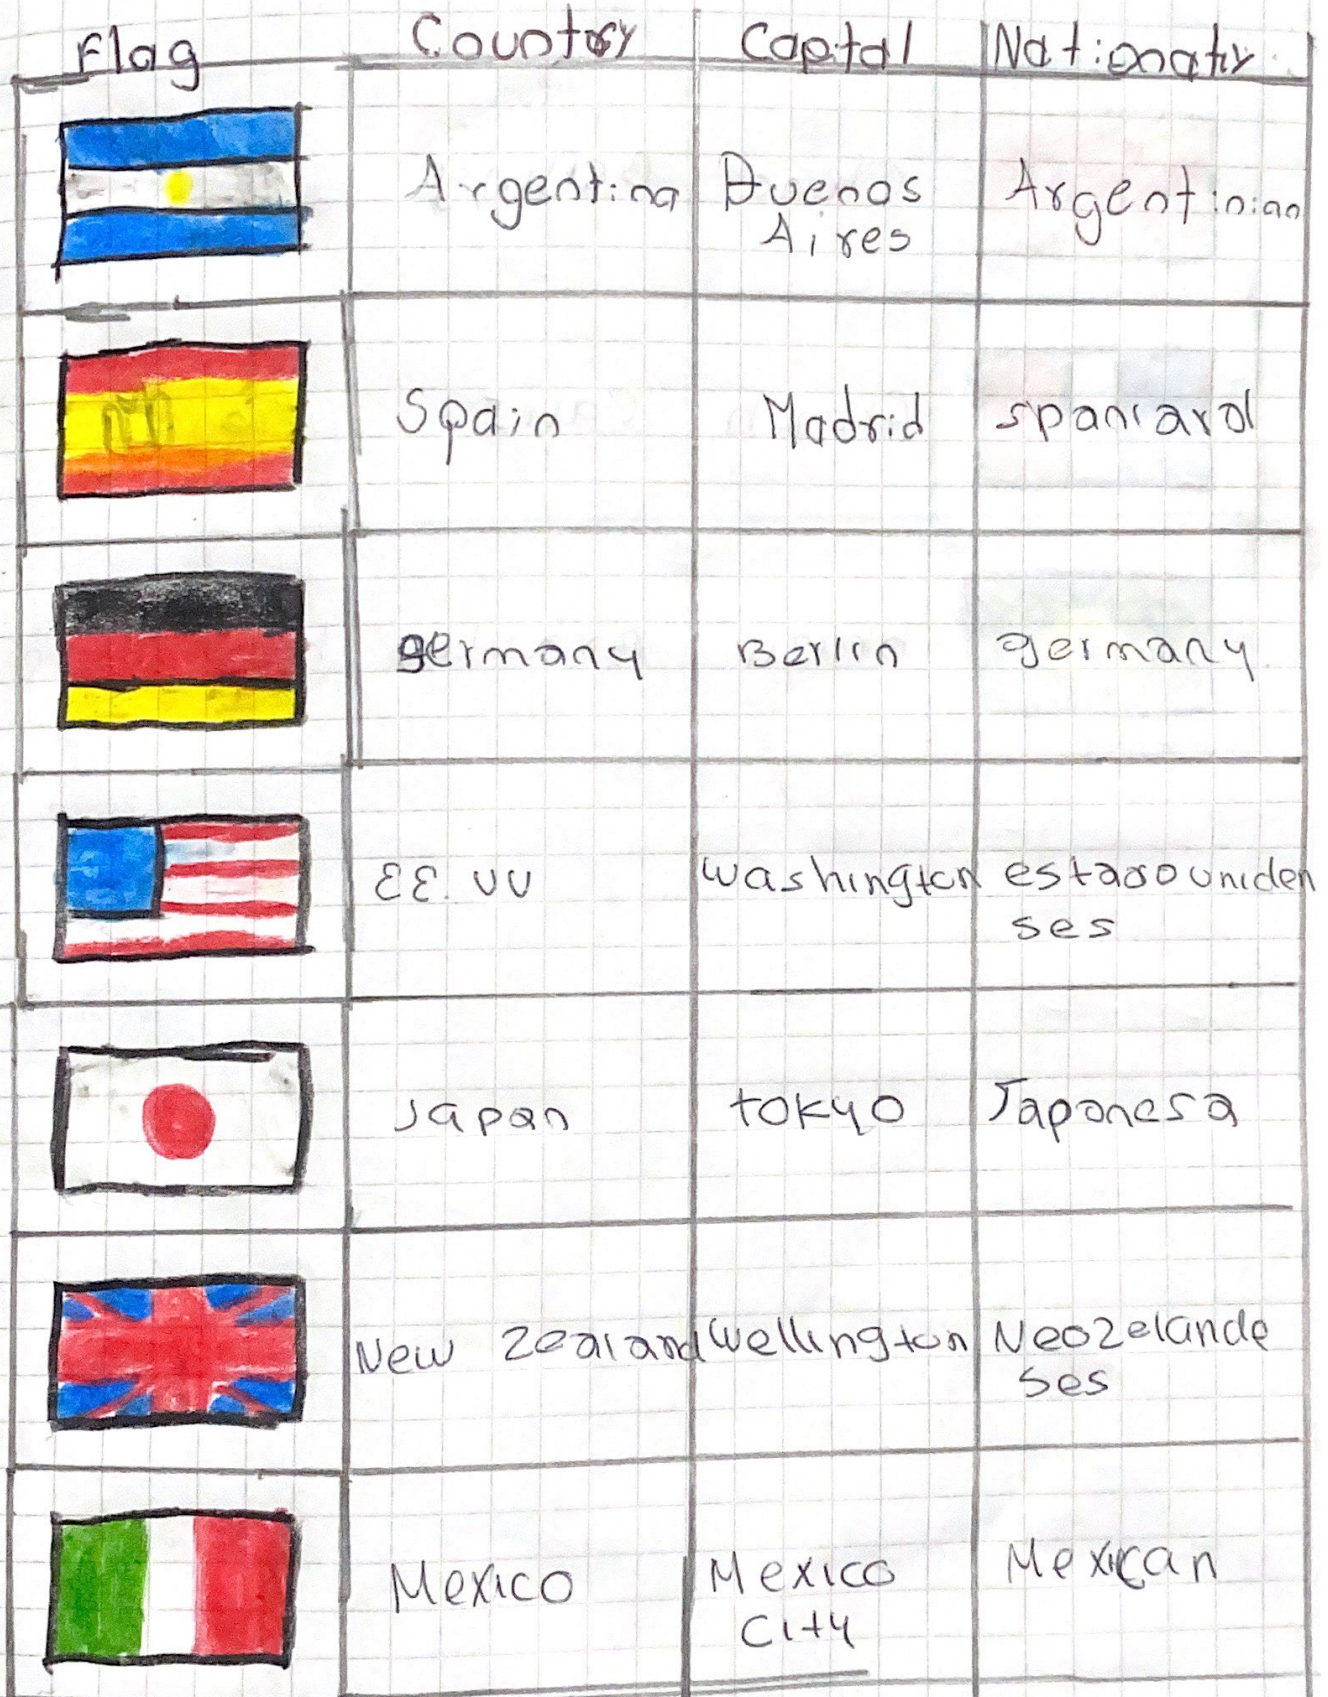 Flag Country Captal Nationatiy
Argentina Buenos Argentinian
Aires
Spain Madrid spaniard
germany Berlin germany
EE. UU Washington estadouniden
ses
Japan tokyo Japonesa
New Zealand Wellington Neozelande
ses
Mexico Mexico Mexican
City